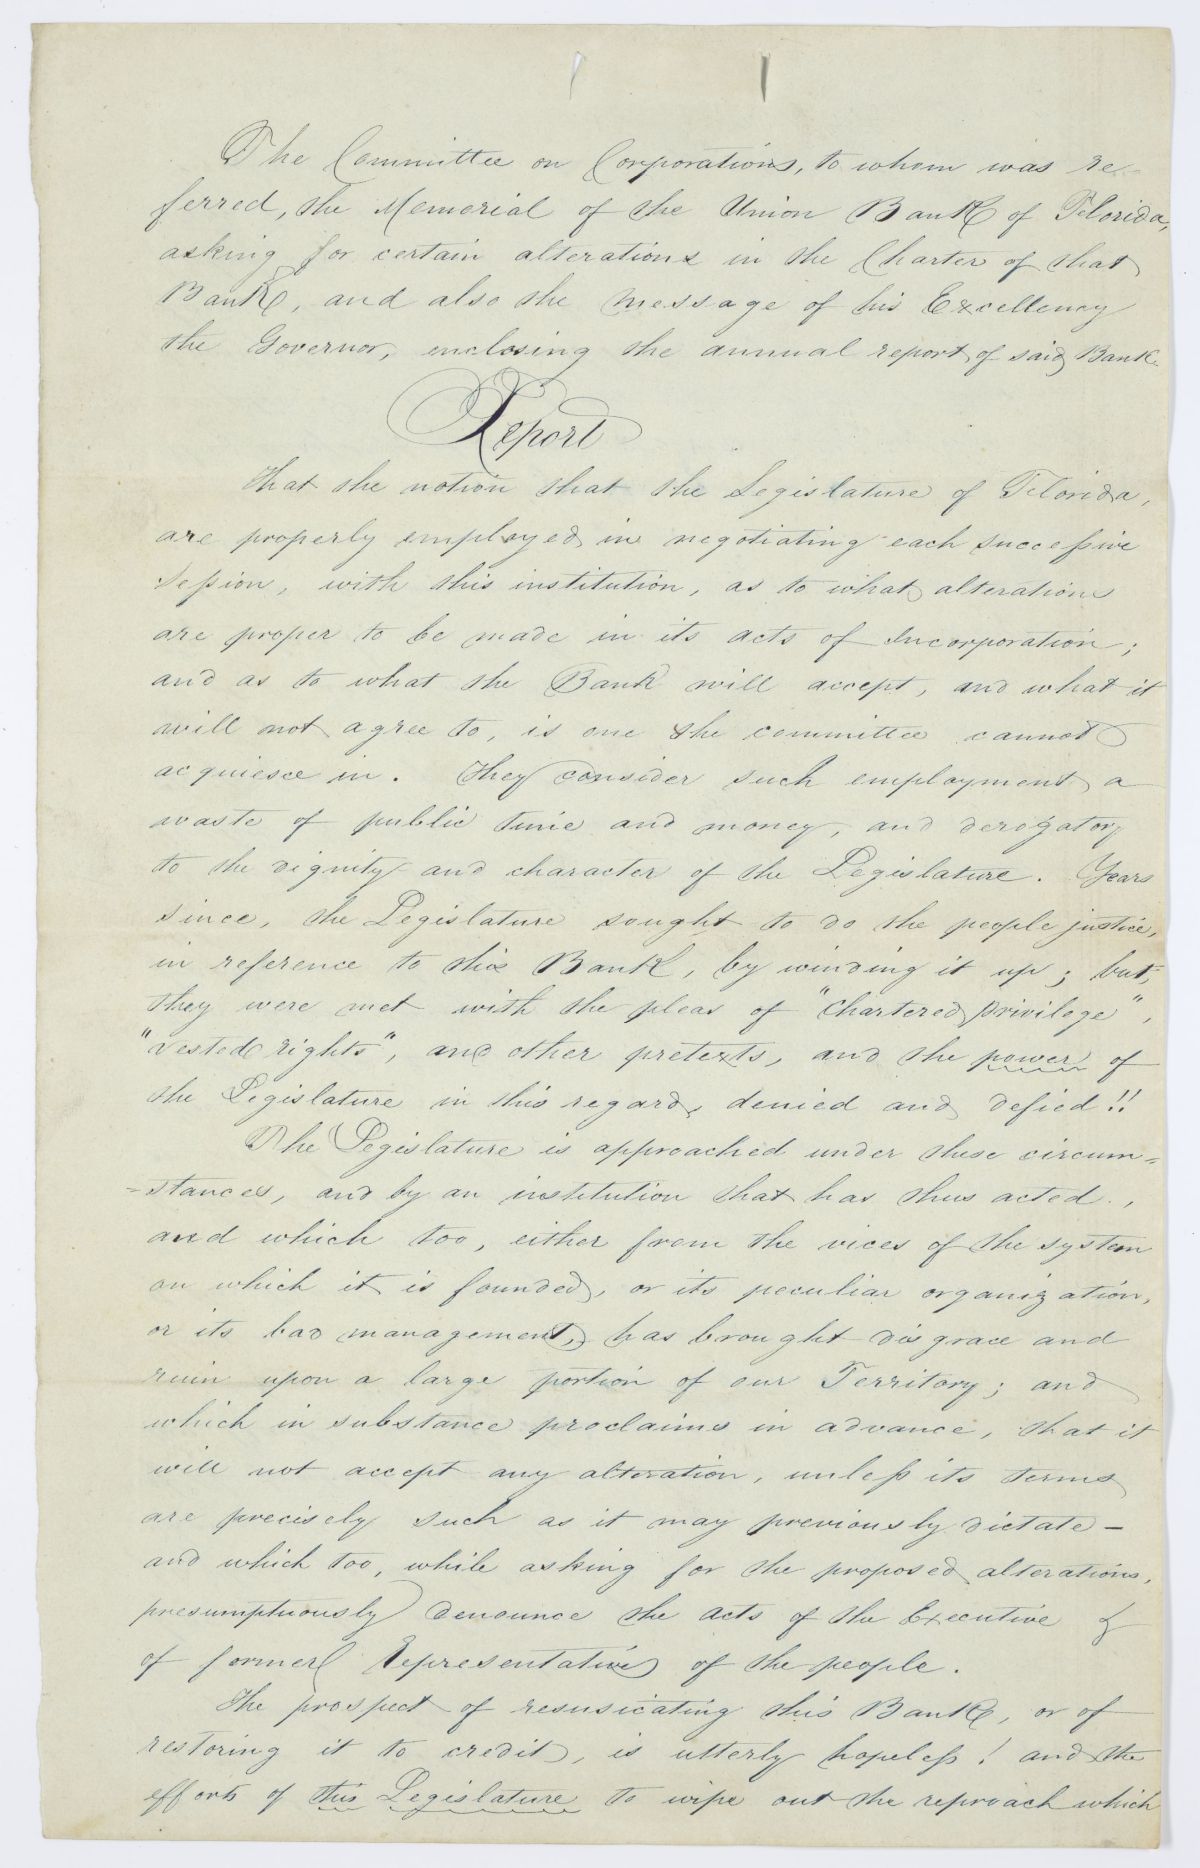 The Committee on Corporations, to whom was re-
ferred, the Memorial of the Union Bank of Florida,
asking for certain alterations in the Charter of that
Bank, and also the message of his Excellency
the Governor, enclosing the annual report of said Bank
Report
That the notion that the Legislature of Florida,
are properly employed in negotiating each successive
session, with this institution, as to what alterations
are proper to be made in its acts of Incorporation;
and as to what the Bank will accept, and what it
will not agree to, is one the committee cannot
acquiesce in. They consider such employment a
waste of public time and money, and derogatory
to the dignity and character of the Legislature. Years
since, the Legislature sought to do the people justice,
in reference to this Bank, by winding it up; but,
they were met with the pleas of "chartered privilege",
"vested rights", and other pretexts, and the power of
the Legislature in this regard, denied and defied!!
The Legislature is approached under these circum=
=stances, and by an institution that has thus acted,
and which too, either from the vices of the system
on which it is founded, or its peculiar organization,
or its bad management, has brought disgrace and
ruin upon a large portion of our Territory; and
which in substance proclaims in advance, that it
will not accept any alteration, unless its terms
are precisely such as it may previously dictate –
and which too, while asking for the proposed alterations,
presumptuously denounce the acts of the Executive &
of former Representatives of the people.
The prospect of resusicating this Bank, or of
restoring it to credit, is utterly hopeless! and the
efforts of this Legislature to wipe out the reproach which